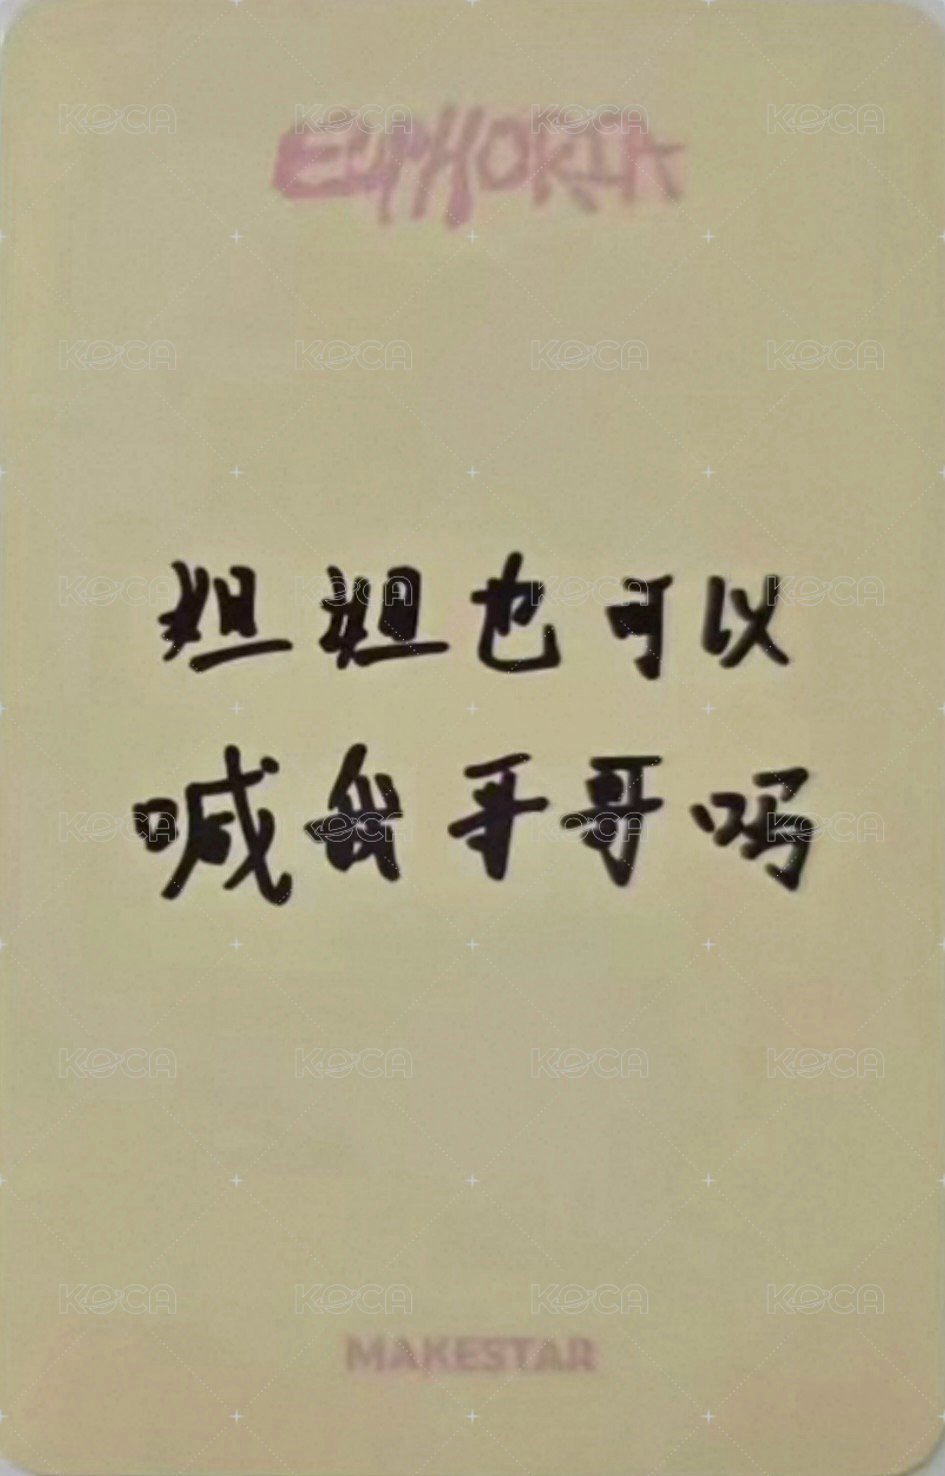 EUPHORIA
姐姐也可以
喊我哥哥吗
MAKESTAR
KOCA KOCA KOCA KOCA
KOCA KOCA KOCA KOCA
KOCA KOCA KOCA KOCA
KOCA KOCA KOCA KOCA
KOCA KOCA KOCA KOCA
KOCA KOCA KOCA KOCA